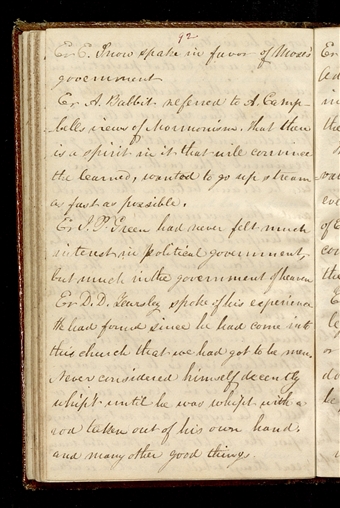 92
Er E. Snow spake in favor of Moses
government
Er A. Babbit. referred to A. Camp-
-bells views of Mormonism, that there
is a spirit in it that will convince
the learned, wanted to go up stream
as fast as possible.
Er J. P. Green had never felt much
interest in political government,
but much in the government of heaven
Er D. D. Yearsley spoke of his experience
He had found since he had come into
this church that we had got to be men.
Never considered himself decently
whip't until he was whipt with a
rod taken out of his own hand,
and many other good things.
Er
in
the
of E
the
E
le
or